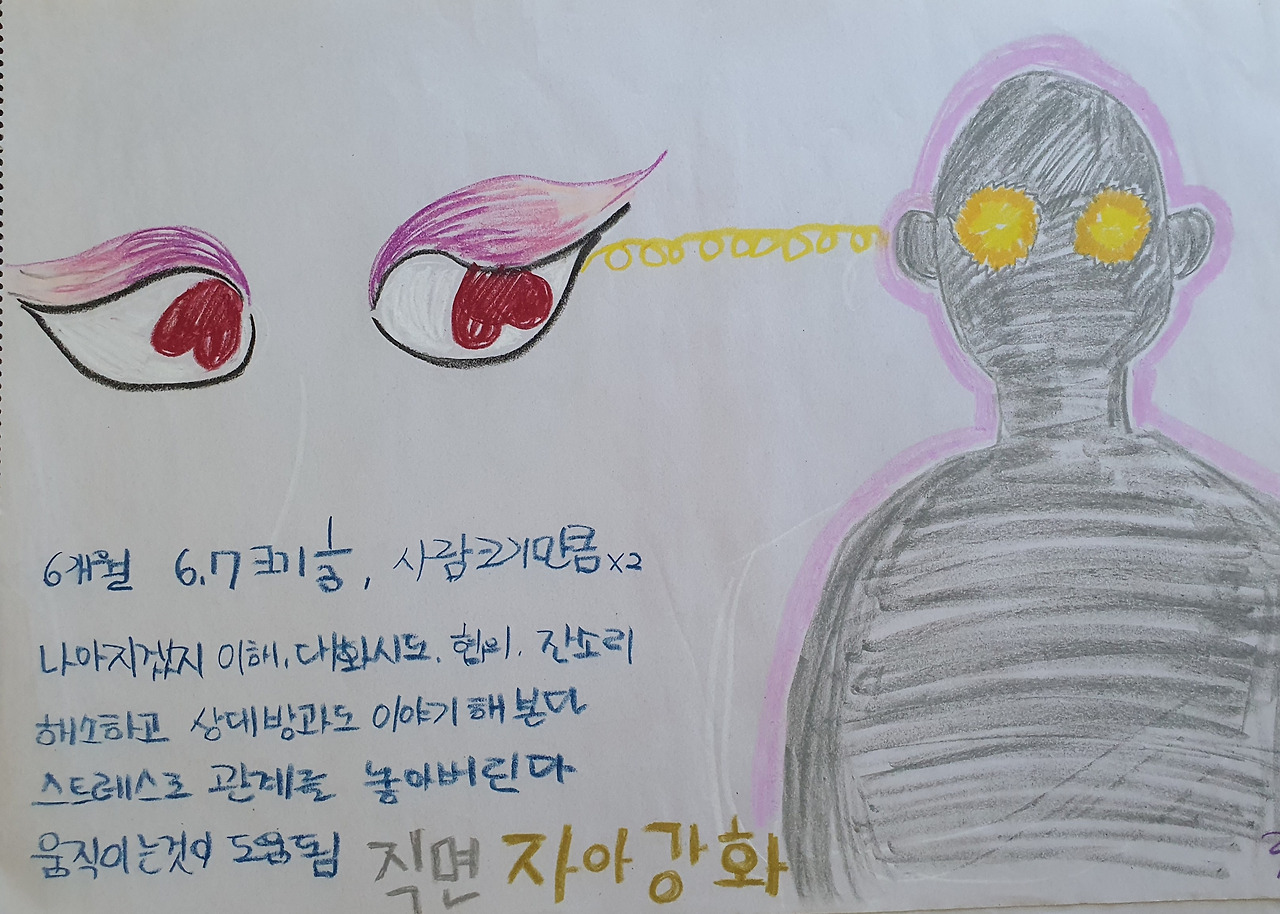 6개월 6.7크기 1/3, 사람크기만큼 x2
나아지겠지 이해, 대화시도, 협의, 잔소리
해소하고 상대방과도 이야기 해본다
스트레스로 관계를 놓아버린다
움직이는것이 도움됨
직면 자아강화